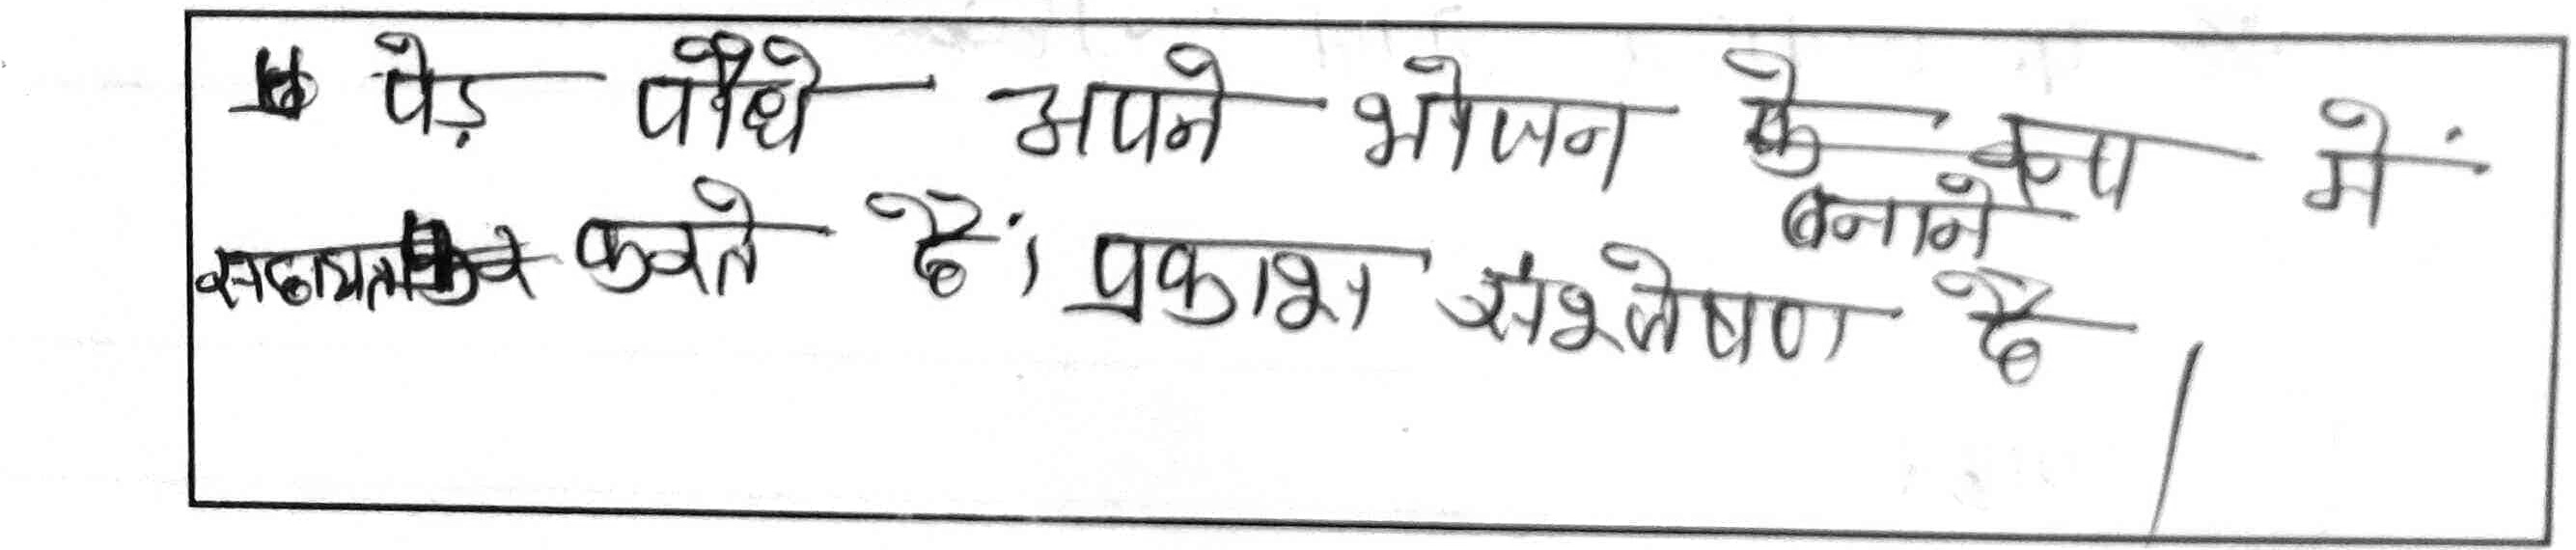 पेड़ पौधे अपने भोजन के रूप में
बनाने
सहायता करते हैं, प्रकाश संश्लेषण है |